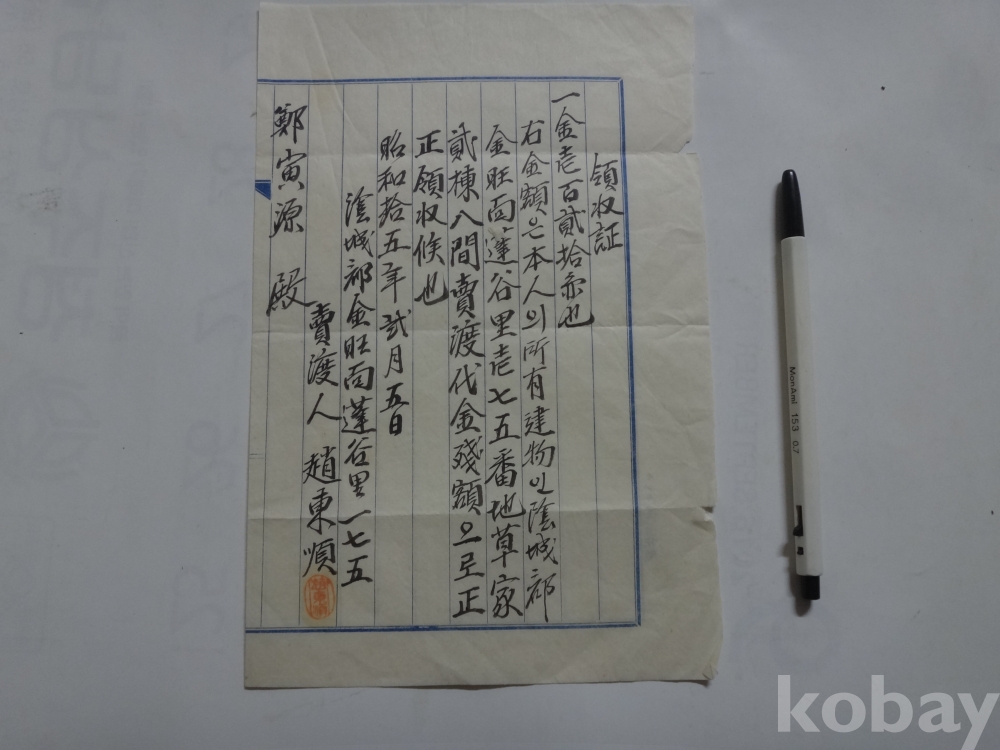 領收証
一金壱百貳拾円也
右金額은本人의所有建物인陰城郡
金旺面蓬谷里壱七五番地草家
貳棟八間賣渡代金殘額으로正
正領收候也
昭和拾五年貳月五日
陰城郡金旺面蓬谷里一七五
賣渡人 趙東順
鄭寅源 殿
MonAmi 153 0.7
kobay